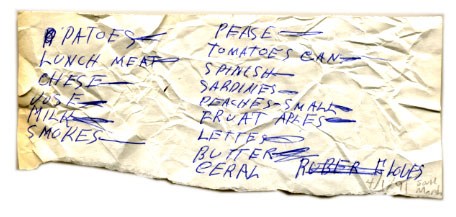 PATOES
LUNCH MEAT
CHESE
JOSE
MILK
SMOKES
PEASE
TOMATOES CAN
SPINISH
SARDINES
PEACHES-SMALL
FRUAT APLES
LETTES
BUTTER
CERAL
RUBER GLOVES